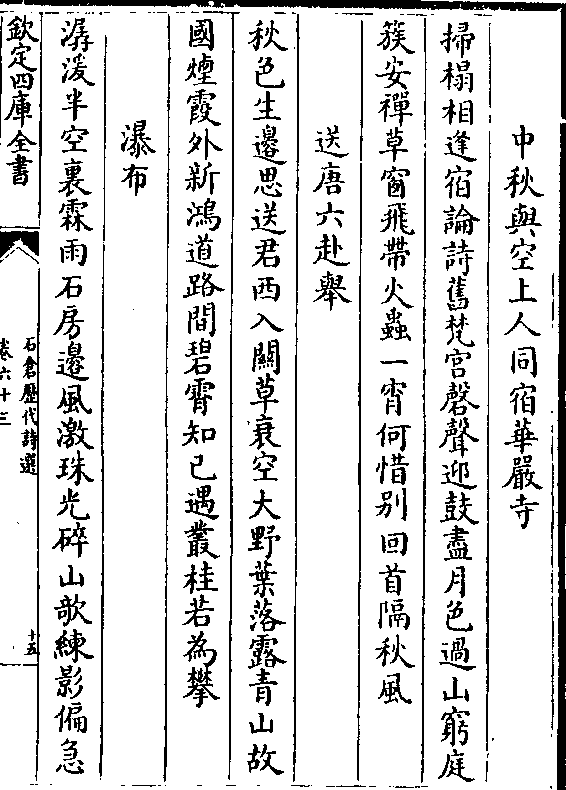 中秋與空上人同宿華嚴寺
掃榻相逢宿論詩舊梵宫磬聲迎鼓盡月色過山窮庭
簇安禪草窗飛帶火蟲一宵何惜别回首隔秋風
送唐六赴舉
秋色生邊思送君西入關草衰空大野葉落露青山故
國煙霞外新鴻道路間碧霄知已遇叢桂若為攀
瀑布
潺湲半空裏霖雨石房邊風激珠光碎山欹練影偏急
欽定四庫全書
石倉歷代詩選
卷六十三
十五